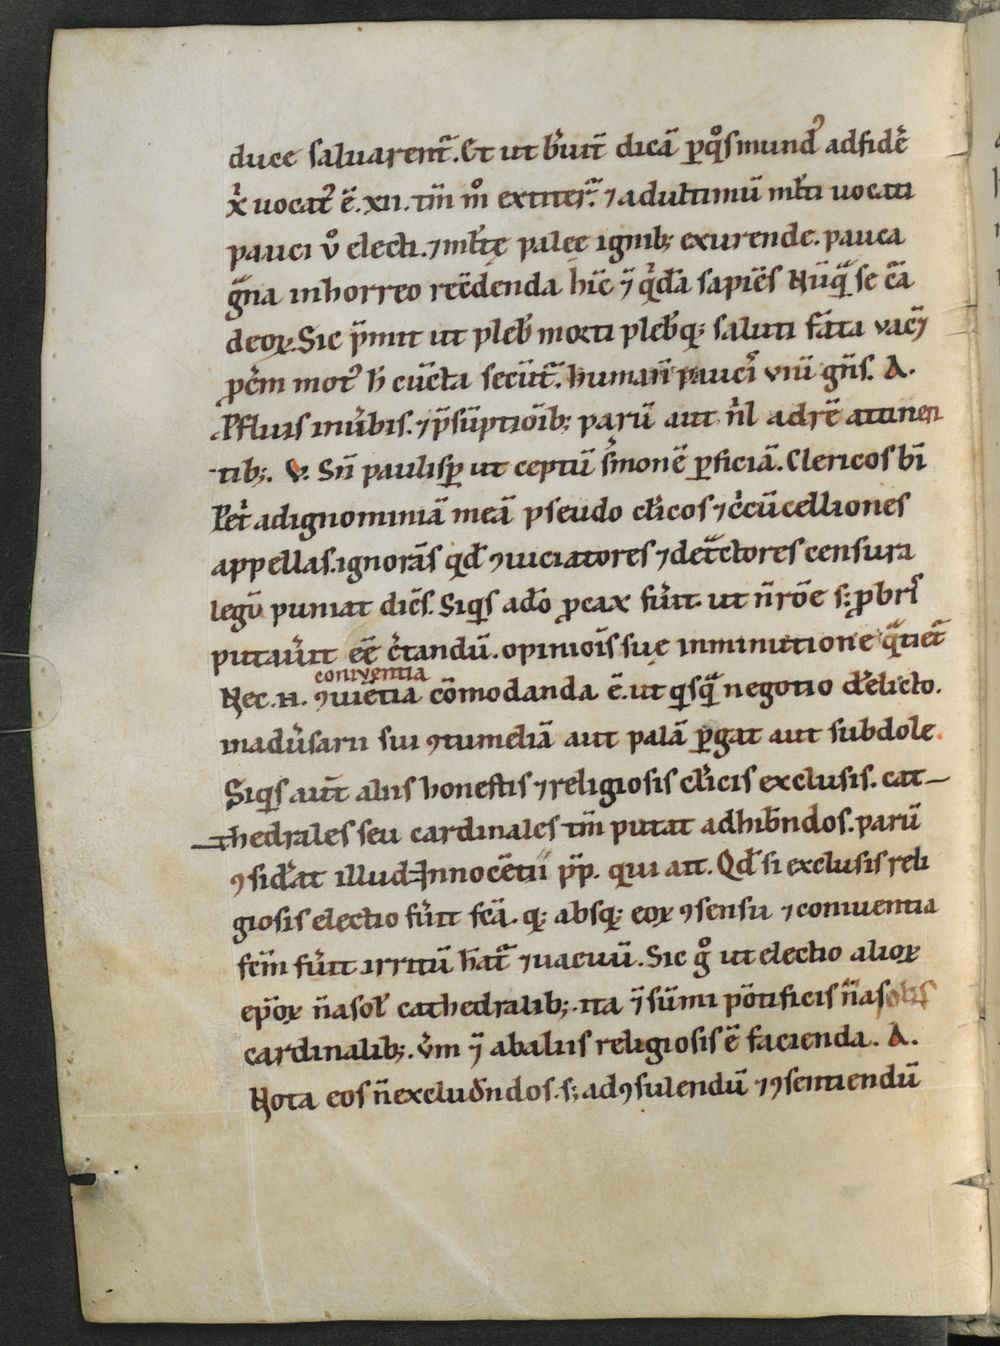 duce saluarent᷑. Et ut b᷑uit᷑ dicā ꝑqͦs mund᷒ ad fidē
xͥ uocat᷒ ē. xii. tm̄ mͦ extiter᷑. ⁊ ad ultimū ml̄ti uocati
pauci v̊ electi. ⁊ ml̄tę paleę ignib; exurende. pauca
gᷓna in horreo recōdenda hīc ⁊̄ qͥdā sapiēs Nūqᷓ se cā
deoꝝ. Sic p̄mit ut pleb᷒ morti pleb᷒q; saluti fāta vacēt
ꝑcm̄ mot᷒ h̄ cūcta secūt᷑. humanū paucis viuit gn̄s. A.
Pfluis in ūbis. ⁊ p̄sūptioīb; parū aut nͥl ad rē attinen
tib;. V. Sn̄ paulisꝑ ut ceptū s̄monē ꝑficiā. Clericos bī
Petͥ ad ignominiā meā pseudo cl̄icos ⁊ cͥcūcelliones
appellas. ignorās qđ ꝯuiciatores ⁊ detᷓctores censura
legū puniat dicēs. Siqͥs adō ꝓcax fūit. ut n̄ rōe s; ꝓbrͥs
putaūit eē c̄tandū. opiniōis suę inminutione qᷓtiet᷑
Nec. H. ꝯuiētia cōmodanda ē. ut qͥsqᷓ negotio d᷑elicto.
coniventia
in ad᷑ūsarii sui ꝯtumeliā aut palā ꝑgat aut subdole.
Siqͥs aut᷑ aliis honestis ⁊ religiosis cl̄icis exclusis. cat
hedrales seu cardinales tm̄ putat adhib᷑ndos. parū
ꝯsid᷑at illud Innocētii pp̄. qui ait. Qđ si exclusis reli
giosis electio fūit fcā. q; absq; eoꝝ ꝯsensu ⁊ coniuentia
fcm̄ fūit irritū hēat᷑ ⁊ uacuū. Sic gͦ ut electio alioꝝ
ep̄oꝝ n̄ a sol᷑ cathedralib;. ita ⁊̄ sūmi pōtificis n̄ a solis
cardinalib;. v̄m ⁊̄ ab aliis religiosis ē facienda. A.
Nota eos n̄ exclud᷑ndos. s; ad ꝯsulendū ⁊ ꝯsentiendū